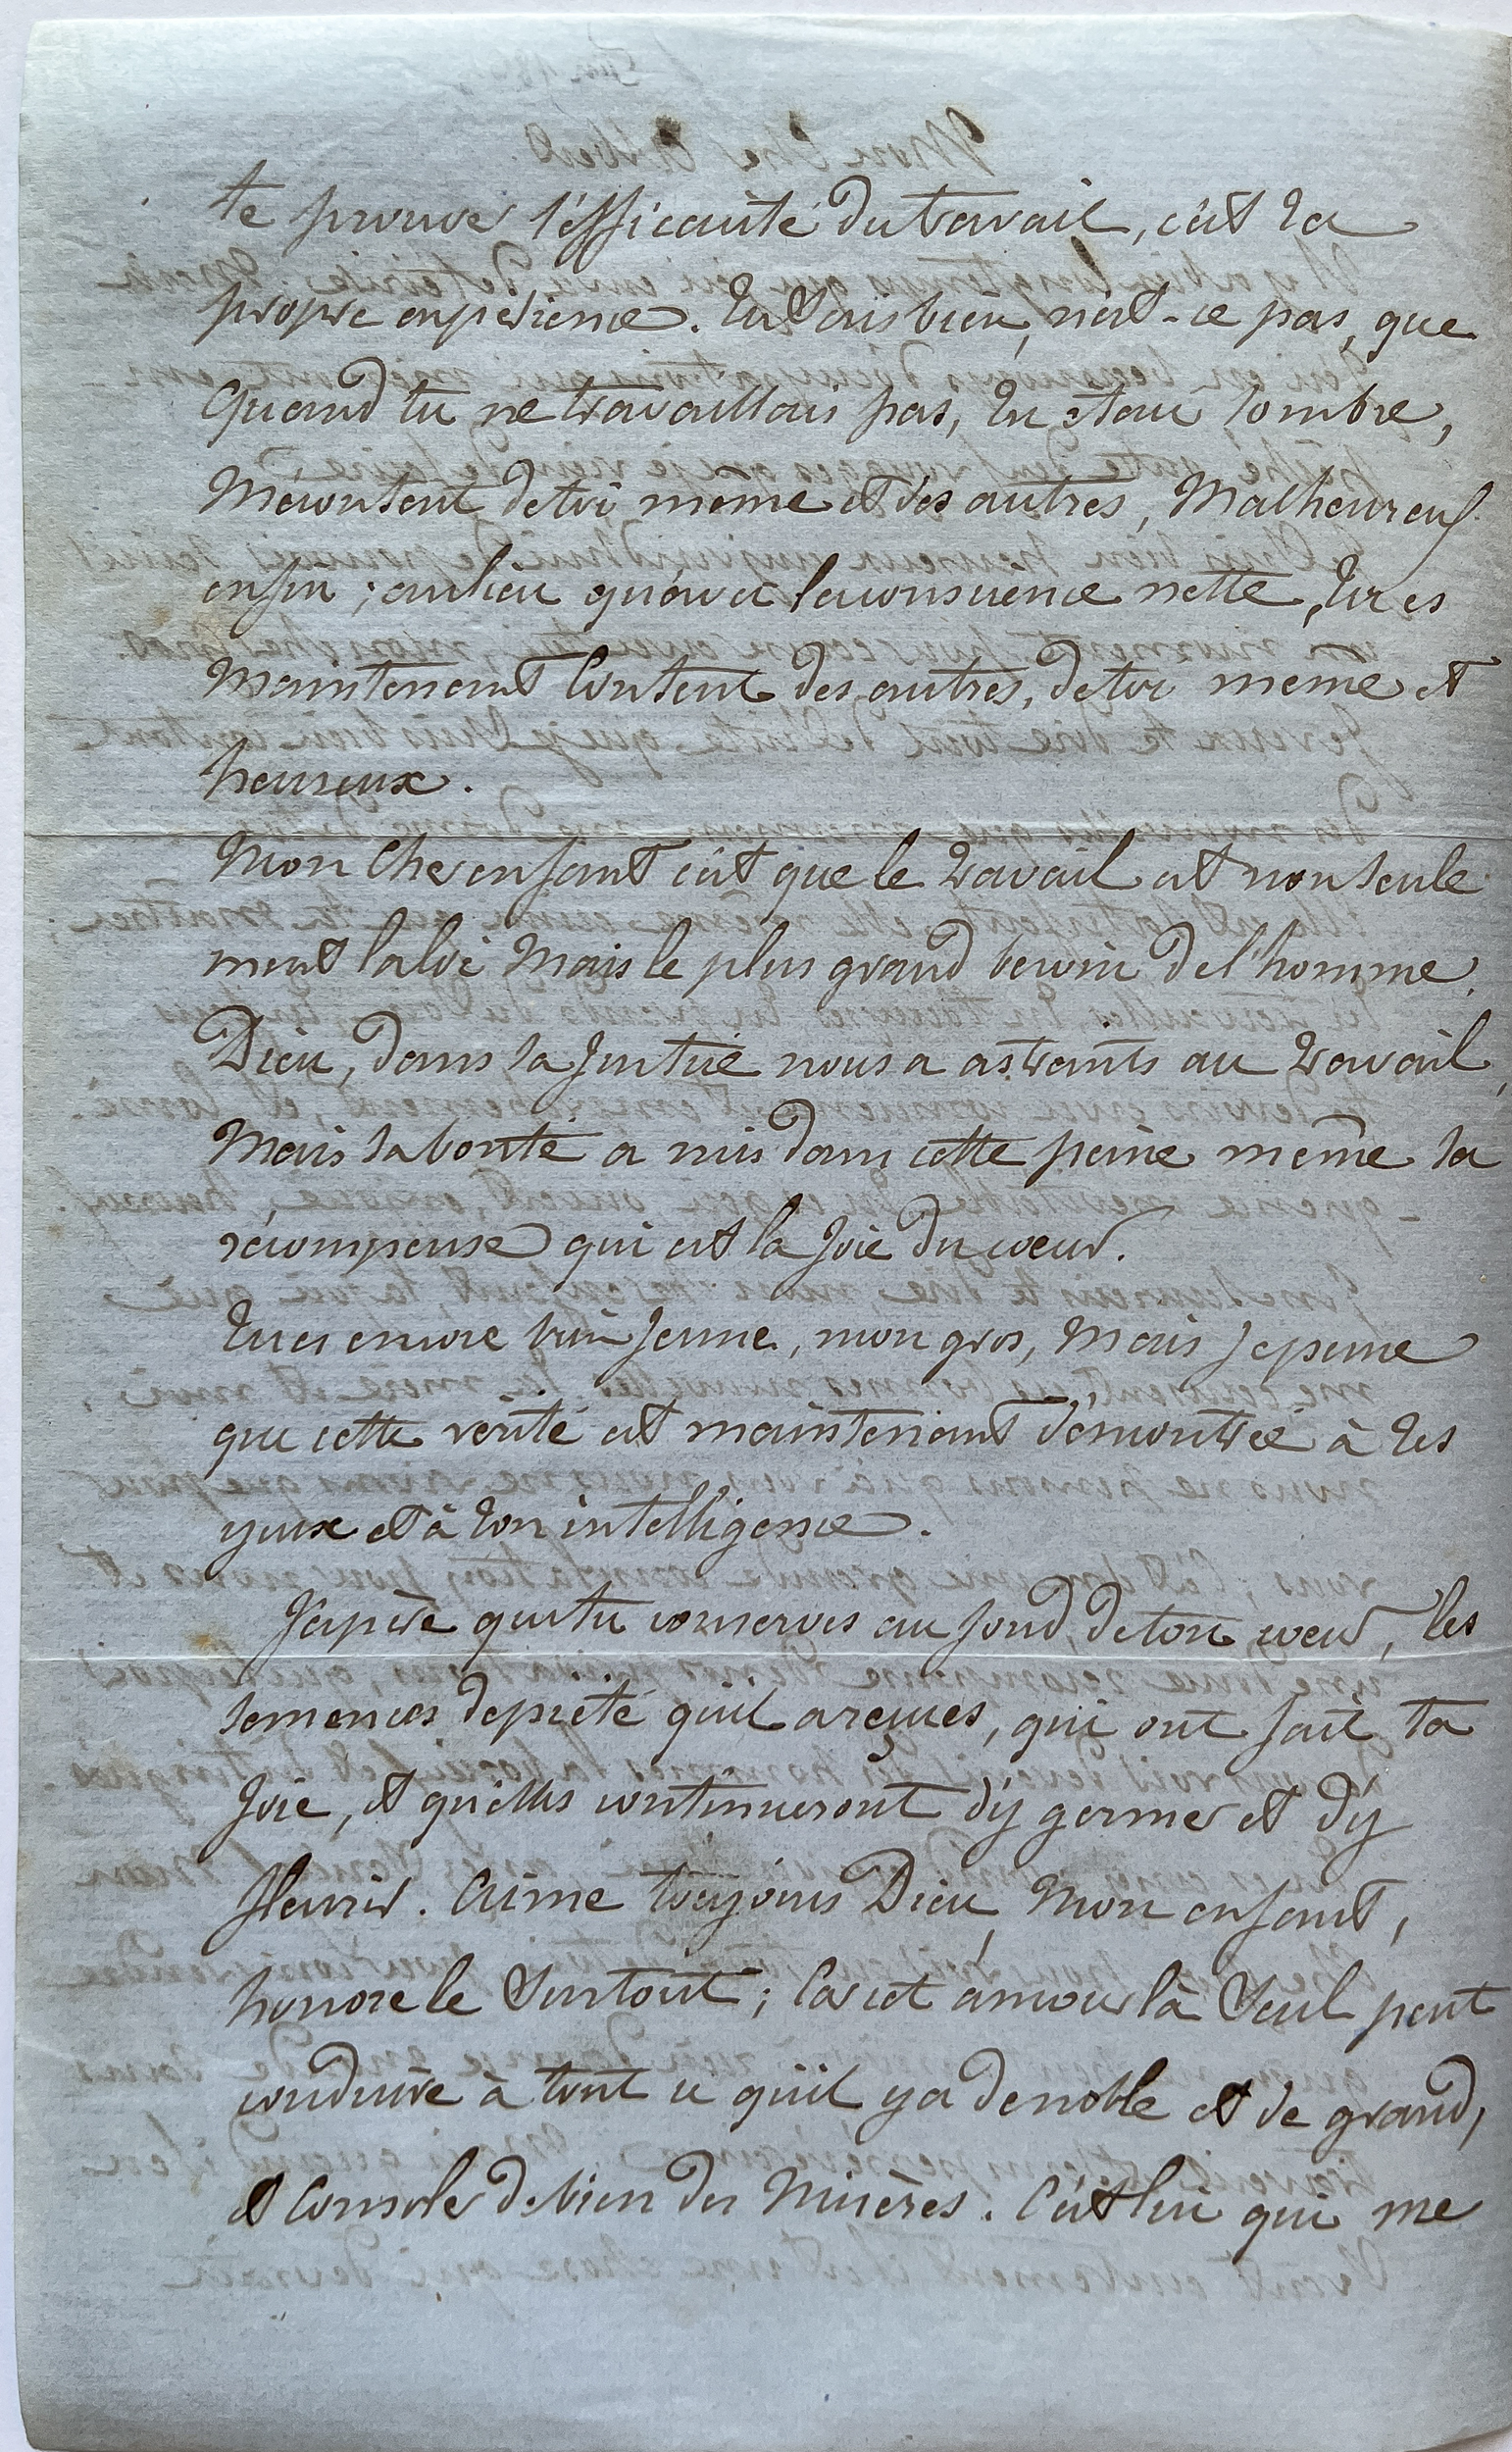 te prouve l'efficacité du travail, c'est ta
propre expérience. Tu sais bien, n'est-ce pas, que
quand tu ne travaillais pas, tu étais sombre,
mécontent de toi même et des autres, malheureux
enfin ; au lieu qu'avec la conscience nette, tu es
maintenant content des autres, de toi même et
heureux.
Mon cher enfant c'est que le travail est non seule
ment la loi mais le plus grand besoin de l'homme.
Dieu, dans sa justice nous a astraints au travail,
mais sa bonté a mis dans cette peine même sa
récompense qui est la joie du coeur.
Tu es encore bien jeune, mon gros, mais je pense
que cette vérité est maintenant démontrée à tes
yeux et à ton intelligence.
J'espère que tu conserves au fond de ton coeur, les
semences de piété qu'il a reçues, qui ont fait ta
joie, et qu'elles continueront d'y germer et d'y
fleurir. Aime toujours Dieu, mon enfant,
honore le surtout ; car cet amour là seul peut
conduire à tout ce qu'il y a de noble et de grand,
et console de bien des misères. C'est lui qui me